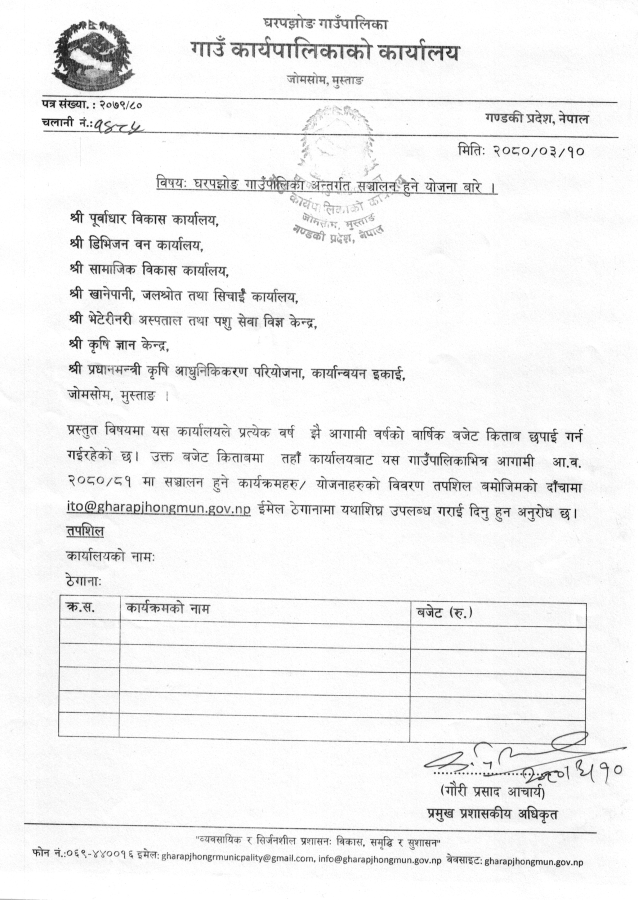 घरपझोङ गाउँपालिका
गाउँ कार्यपालिकाको कार्यालय
जोमसोम, मुस्ताङ
पत्र संख्या. : २०७९/८०
गण्डकी प्रदेश, नेपाल
चलानी नं.:१४८५
मितिः २०८०/०३/१०
विषयः घरपझोङ गाउँपालिका अन्तर्गत सञ्चालन हुने योजना बारे ।
कार्यपालिकाको कार्यालय
जोमसोम, मुस्ताङ
गण्डकी प्रदेश, नेपाल
श्री पूर्वाधार विकास कार्यालय,
श्री डिभिजन वन कार्यालय,
श्री सामाजिक विकास कार्यालय,
श्री खानेपानी, जलश्रोत तथा सिचाईं कार्यालय,
श्री भेटेरीनरी अस्पताल तथा पशु सेवा विज्ञ केन्द्र,
श्री कृषि ज्ञान केन्द्र,
श्री प्रधानमन्त्री कृषि आधुनिकिकरण परियोजना, कार्यान्वयन इकाई,
जोमसोम, मुस्ताङ ।
प्रस्तुत विषयमा यस कार्यालयले प्रत्येक वर्ष झै आगामी वर्षको वार्षिक बजेट किताब छपाई गर्न
गईरहेको छ। उक्त बजेट किताबमा तहाँ कार्यालयबाट यस गाउँपालिकाभित्र आगामी आ.व.
२०८०/८१ मा सञ्चालन हुने कार्यक्रमहरु/ योजनाहरुको विवरण तपशिल बमोजिमको दाँचामा
ito@gharapjhongmun.gov.np ईमेल ठेगानामा यथाशिघ्र उपलब्ध गराई दिनु हुन अनुरोध छ।
तपशिल
कार्यालयको नामः
ठेगानाः
क्र.स. कार्यक्रमको नाम बजेट (रु.)
२०८०।३।१०
(गौरी प्रसाद आचार्य)
प्रमुख प्रशासकीय अधिकृत
"व्यवसायिक र सिर्जनशील प्रशासनः विकास, समृद्धि र सुशासन"
फोन नं.:०६९-४४००१६ इमेलः gharapjhongrmunicpality@gmail.com, info@gharapjhongmun.gov.np वेबसाइटः gharapjhongmun.gov.np